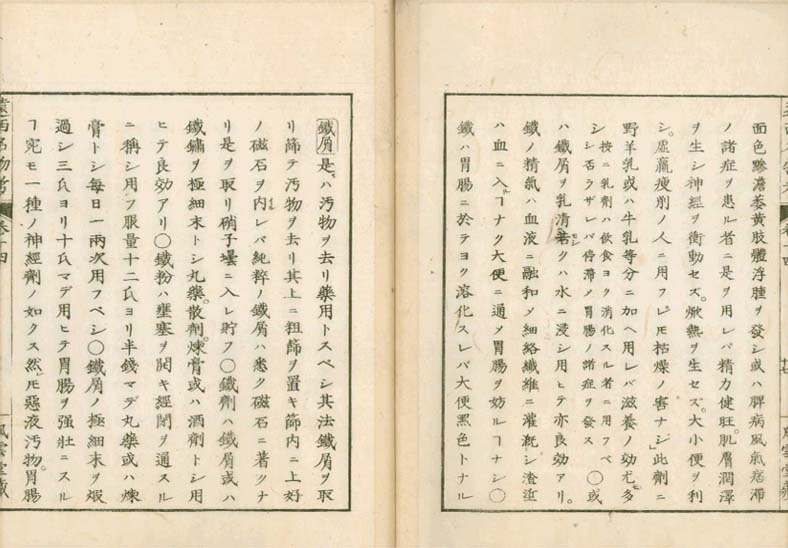 面色黲澹萎黄肢體浮腫ヲ發シ或ハ脾病風氣痞滯
ノ諸症ヲ患ル者ニ是ヲ用レバ精力健旺。肌膚潤澤
ヲ生シ神經ヲ衝動セズ。焮熱ヲ生セズ。大小便ヲ利
シ。虛羸瘦削ノ人ニ用フレㄱモ枯燥ノ害ナシ」此劑ニ
野羊乳或ハ牛乳等分ニ加ヘ用レバ滋養ノ効尤多
シ按ニ乳劑ハ飲食ヨク消化スル者ニ用フベシ否ラザレバ停滯ノ胃腸ノ諸症ヲ發ス〇或
ハ鐵屑ヲ乳清若クハ水ニ浸シ用ヒテ亦良効アリ。
鐵ノ精氣ハ血液ニ融和メ細絡纎維ニ灌漑シ渣滓
ハ血ニ入ルヿナク大便ニ通メ胃腸ヲ妨ルヿナシ〇
鐵ハ胃腸ニ於テヨク溶化スレバ大便黑色トナル
風雲堂藏
鐵屑是ハ汚物ヲ去リ藥用トスベシ其法鐵屑ヲ取
リ篩テ汚物ヲ去リ其上ニ粗篩ヲ置キ篩内ニ上好
ノ磁石ヲ内レバ純粹ノ鐵屑ハ悉ク磁石ニ著クナ
リ是ヲ取リ硝子壜ニ入レ貯フ〇鐵劑ハ鐵屑或ハ
鐵鏽ヲ極細末トシ丸藥。散劑。煉膏或ハ酒劑トシ用
ヒテ良効アリ〇鐵粉ハ壅塞ヲ開キ經閉ヲ通スル
ニ稱シ用フ服量十二氏ヨリ半錢マデ丸藥或ハ煉
膏トシ每日一兩次用フベシ〇鐵屑ノ極細末ヲ煆
過シ三氏ヨリ十氏マデ用ヒテ胃腸ヲ强壯ニスル
ヿ宛モ一種ノ神經劑ノ如クス然ㄱモ惡液汚物。胃腸
遠西名物考 卷十四 風雲堂藏